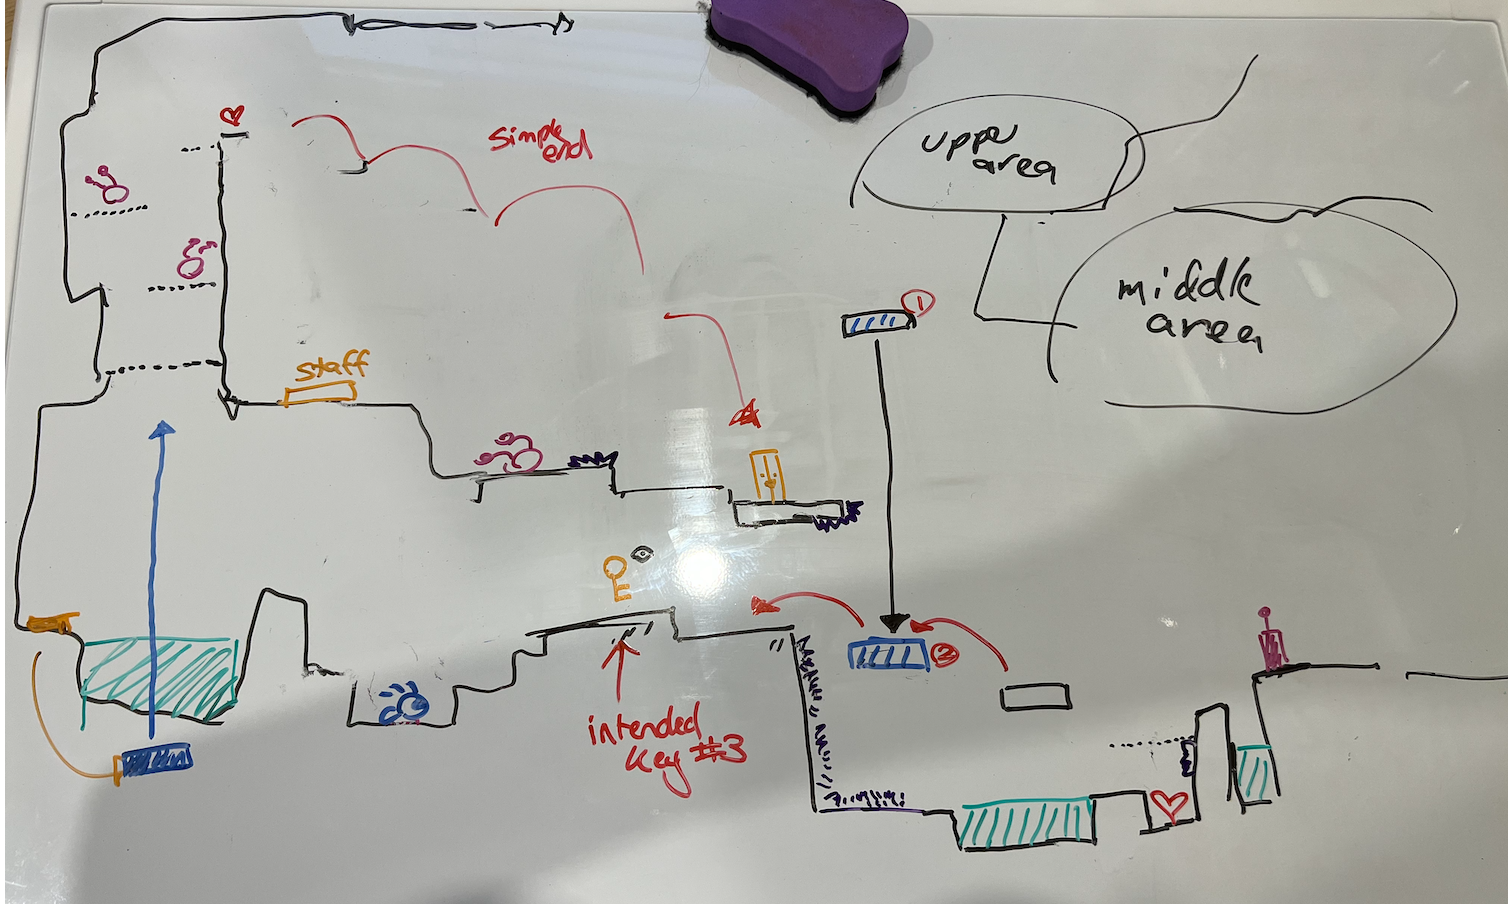 simple
end
upper
area
middle
area
①
staff
②
intended
key #3